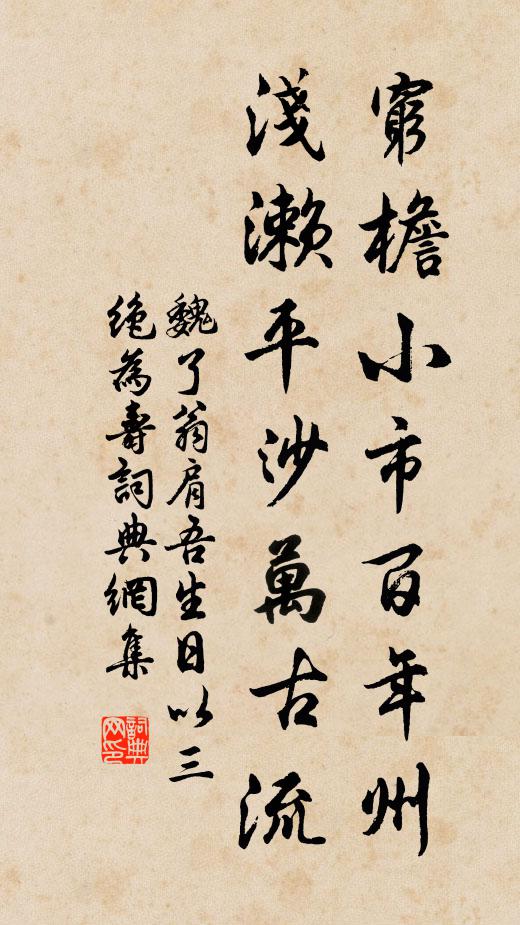 窮檐小市百年州
淺瀨平沙萬古流
魏了翁肩吾生日以三
絶為壽詞典網集
詞典网印